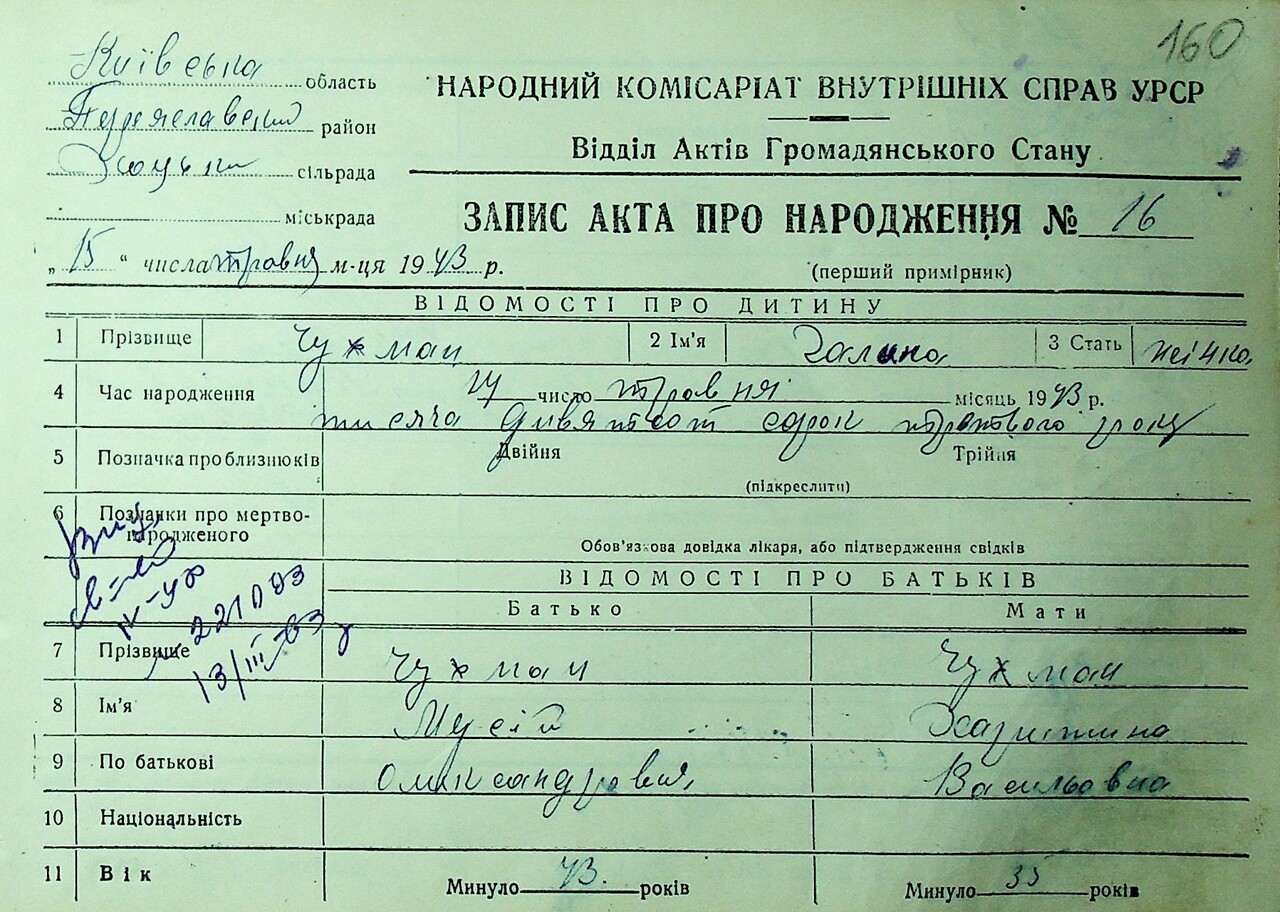 160
Київська область
Переяславский район
сільрада
міськрада
НАРОДНИЙ КОМІСАРІАТ ВНУТРІШНІХ СПРАВ УРСР
Відділ Актів Громадянського Стану
ЗАПИС АКТА ПРО НАРОДЖЕННЯ № 16
„15" числа травня м-ця 1943 р.
(перший примірник)
ВІДОМОСТІ ПРО ДИТИНУ
1 Прізвище Чухман 2 Ім'я Галина 3 Стать жінка
4 Час народження 14 число травня місяць 1943 р.
тисяча дивятсот сорок третього року
5 Позначка про близнюків Двійня Трійня
(підкреслити)
6 Позначки про мертво-
народженого
Обов'язкова довідка лікаря, або підтвердження свідків
221093
13/III-63
ВІДОМОСТІ ПРО БАТЬКІВ
Батько Мати
7 Прізвище Чухман Чухман
8 Ім'я Мусій Харитина
9 По батькові Олександрович Васильовна
10 Національність
11 Вік Минуло 43. років Минуло 35 років